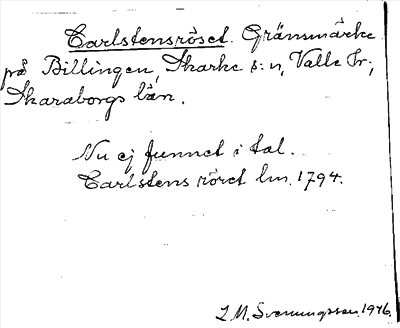 Carlstensröset. Gränsmärke
på Billingen, Skarke s:n, Valle Hr;
Skaraborgs län.
Nu ej funnet i tal.
Carlstens röret lm. 1794.
L.M. Svenungsson. 1946.